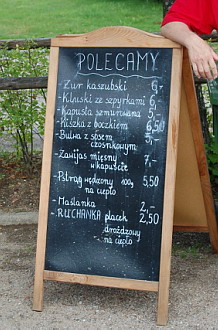 POLECAMY
- Żur kaszubski 6,-
- Kluski ze szpyrkami 6,-
- Kapusta zasmażana 4,-
- Kiszka z boczkiem 6,50
- Bulwa z sosem czosnkowym
- Zawijas mięsny w kapuście 7,-
- Pstrąg wędzony 100g 5,50
na ciepło
- Maślanka 2,-
- RUCHANKA placek 2,50
drożdżowy
na ciepło